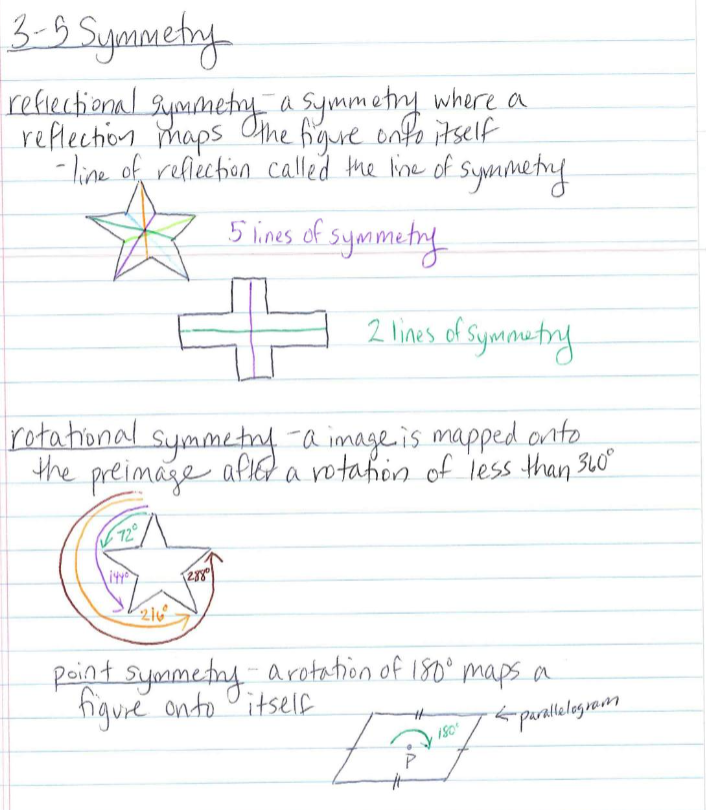 3-5 Symmetry
reflectional symmetry - a symmetry where a
reflection maps the figure onto itself
- line of reflection called the line of symmetry
5 lines of symmetry
2 lines of symmetry
rotational symmetry - a image is mapped onto
the preimage after a rotation of less than 360°
72°
144°
288°
216°
point symmetry - a rotation of 180° maps a
figure onto itself
← parallelogram
180°
P